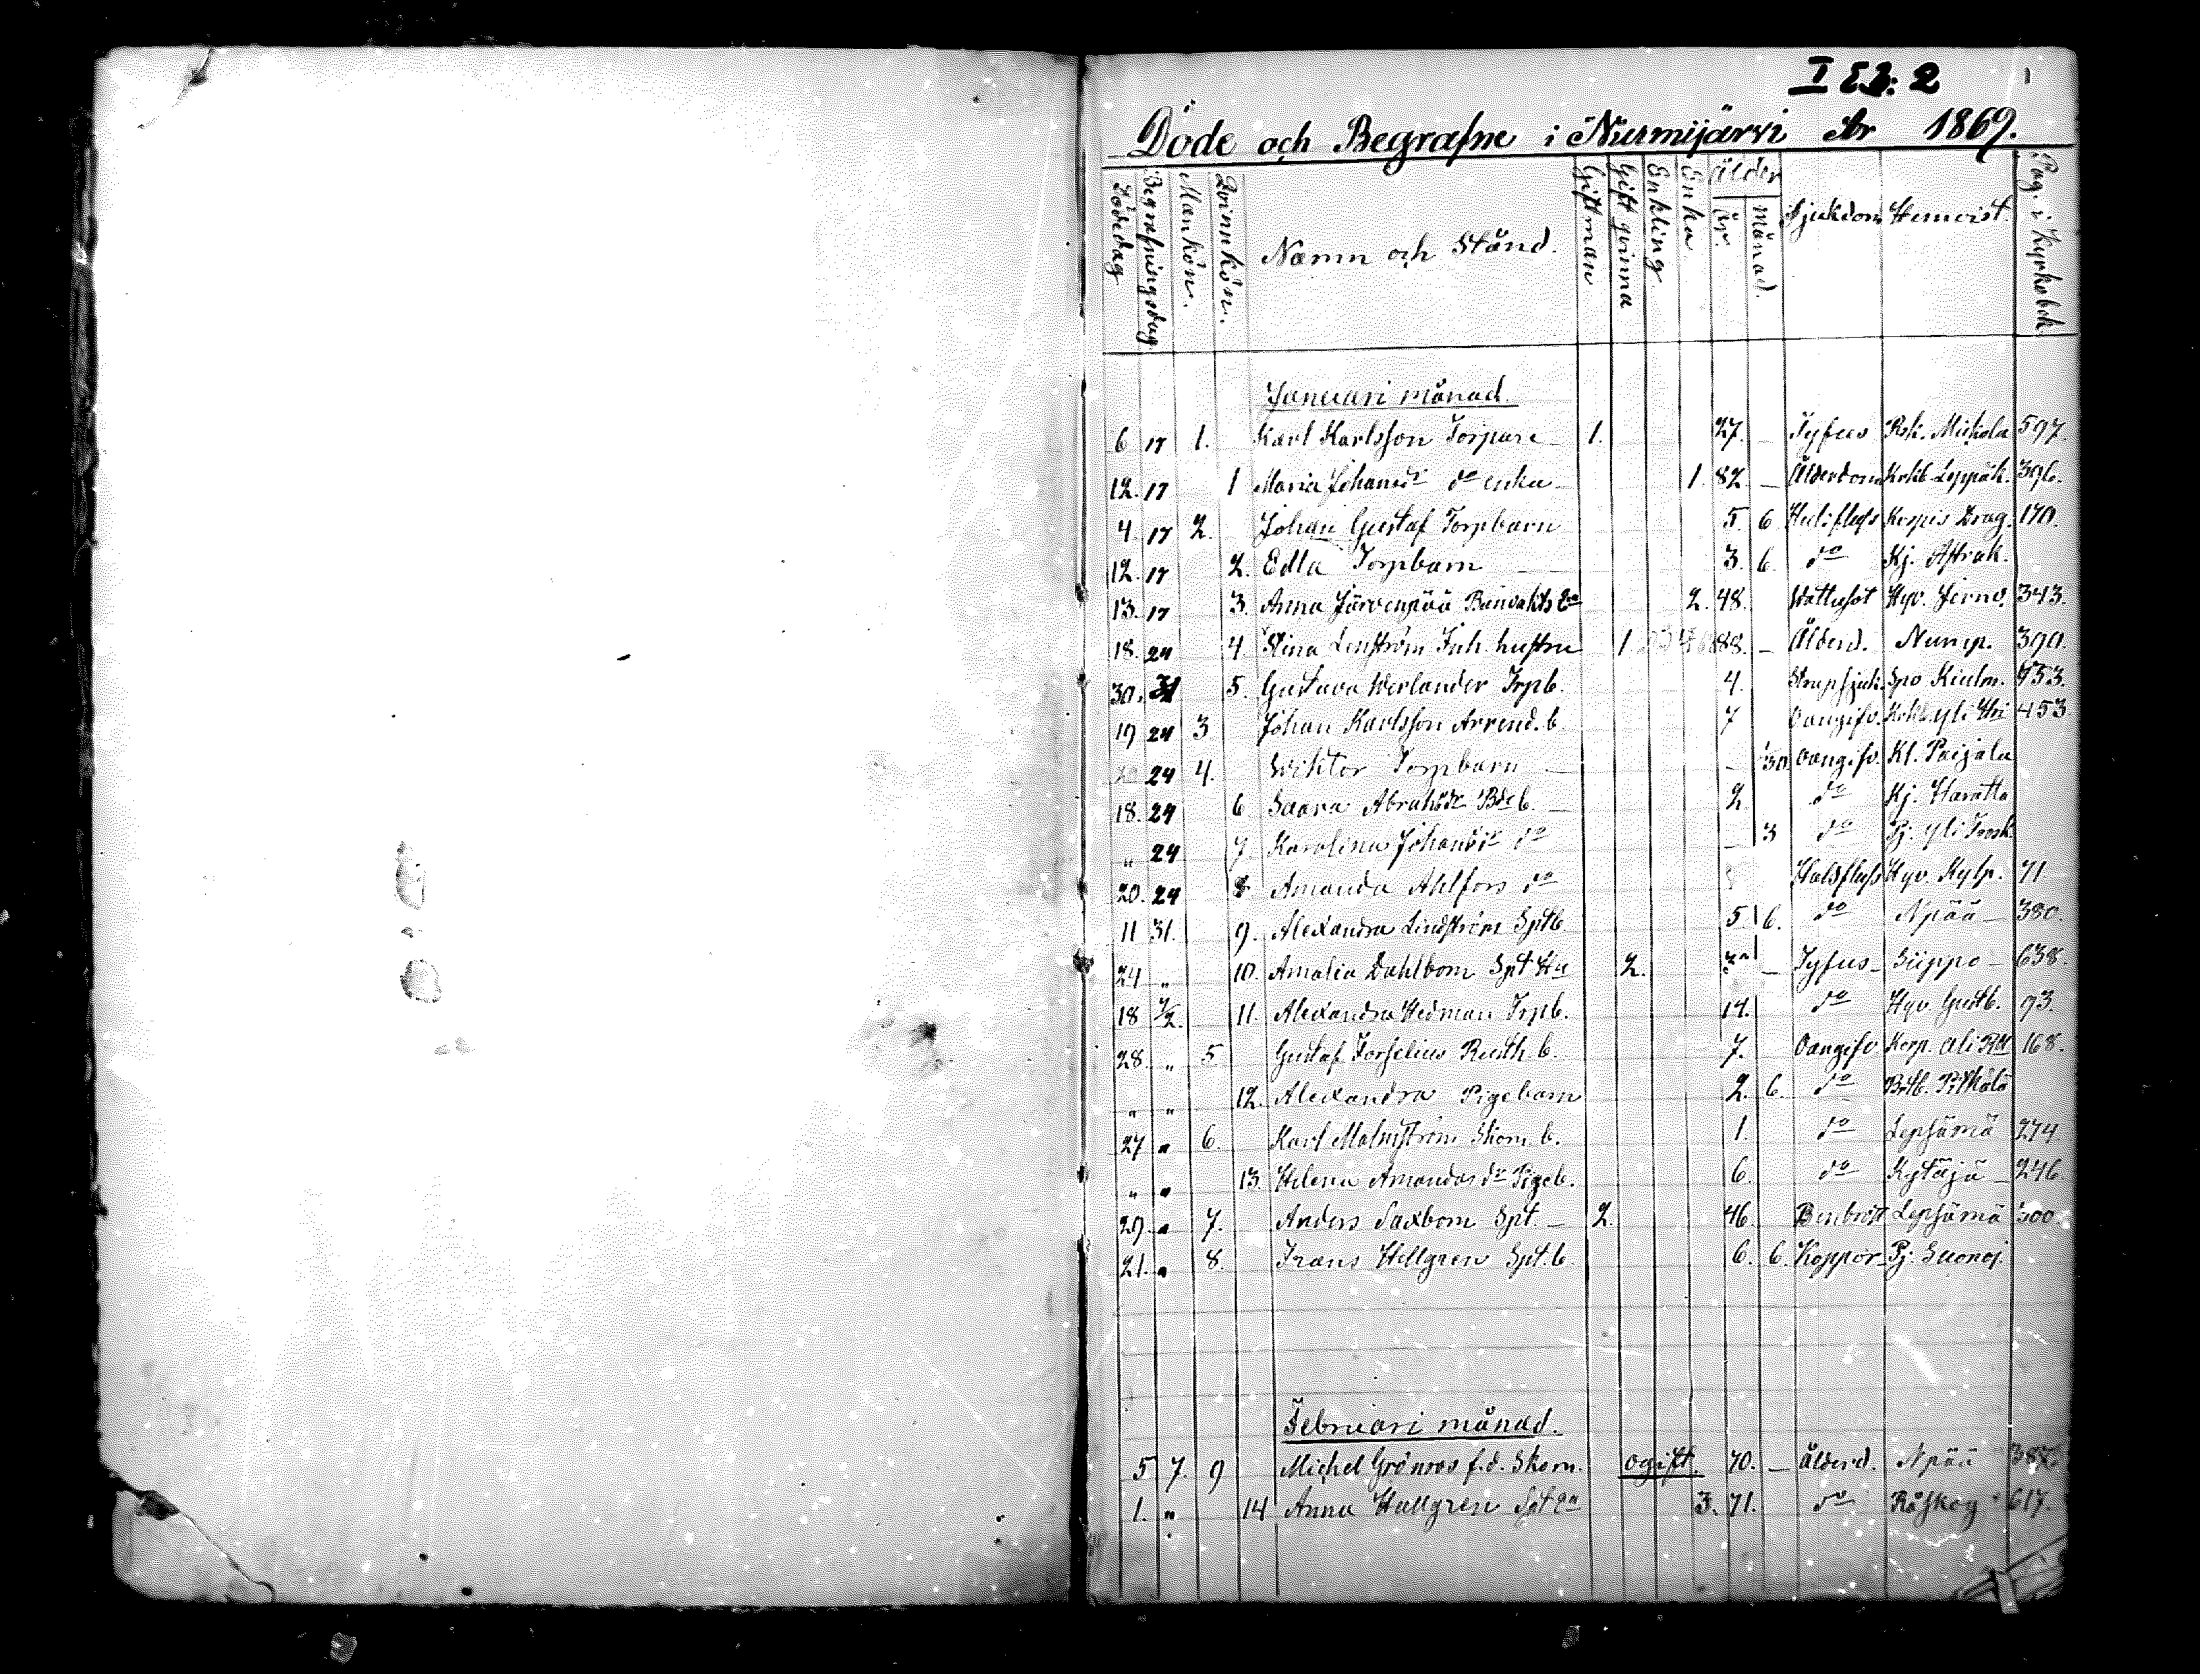 I E3: 2
1
Döde och Begrafne i Nurmijärvi År 1869.
Dödedag Begrafningsdag Mankön. Qvinnkön. Namn och Stånd. Gift man Gift qvinna Enkling Enka Ålder år. Månad. Sjukdom Hemvist. Pag. i Kyrkobok
Januari månad.
6 17 1. Karl Karlsson Torpare 1. 27. — Tyfus Rsk. Mickola 597.
12. 17 1 Maria Johansdr do enka 1. 82 — Ålderdom Krkb. Leppäk. 396.
4. 17 2. Johan Gustaf Torpbarn 5. 6 Korpis Drag. 170.
12. 17 2. Edla Torpbarn 3. 6. do Kj. Astrak.
13. 17 3. Anna Järvenpää 2. 48. Wattusot Hyv. Jernv. 343.
18. 24 4. Stina Lenström Inh. hustru 1 88. — Ålderd. Nump. 390.
30. 31 5. Gustava Werlander Trpb. 4. Strupsjuk. 453.
19 24 3 Johan Karlsson Arrend. b. 7 Oangifv. Krkb. Yli 453
24 4. Wiktor Torpbarn — 30. Oangifv. Kl. Paijala
18. 24 6 Saara Abrahsdr Bdeb. — 2 do Kj. Haratta
„ 24 7. Karolina Johansdr do — 3 do Pj. Yli
20. 24 8 Amanda Ahlfors do Halsfluss Hyv. Kylp. 71
11 31. 9. Alexandra Lindström Sptb 5. 6. do Npää — 380.
24 „ 10. Amalia Dahlbom Spt Hu 2. — Tyfus — Siippo — 638.
18 7/2. 11. Alexandra Hedman Trpb. 14. do Hyv. Gustb. 93.
28. „ 5 Gustaf Forselius Rusth. b. 7. Oangifv Korp. Ali 168.
„ „ 12. Alexandra Pigebarn 2. 6. do Pitkälä
27 „ 6. Karl Malmström Skom. b. 1. do Lepsämä 274.
„ „ 13. Helena Amandas dr Pigeb. 6. do Kytäjä — 246
29. „ 7. Anders Saxbom Spt. — 2. 46. Benbrott Lepsämä 300.
21. „ 8. Frans Hellgren Spt. b. 6. 6. Koppor Pj. Suonoj.
Februari månad.
5 7. 9 Michel Grönroos f.d. Skom. ogift. 70. — Ålderd. Npää 387.
1. „ 14 Anna Hallgren Spt 3. 71. do Röskog 617.